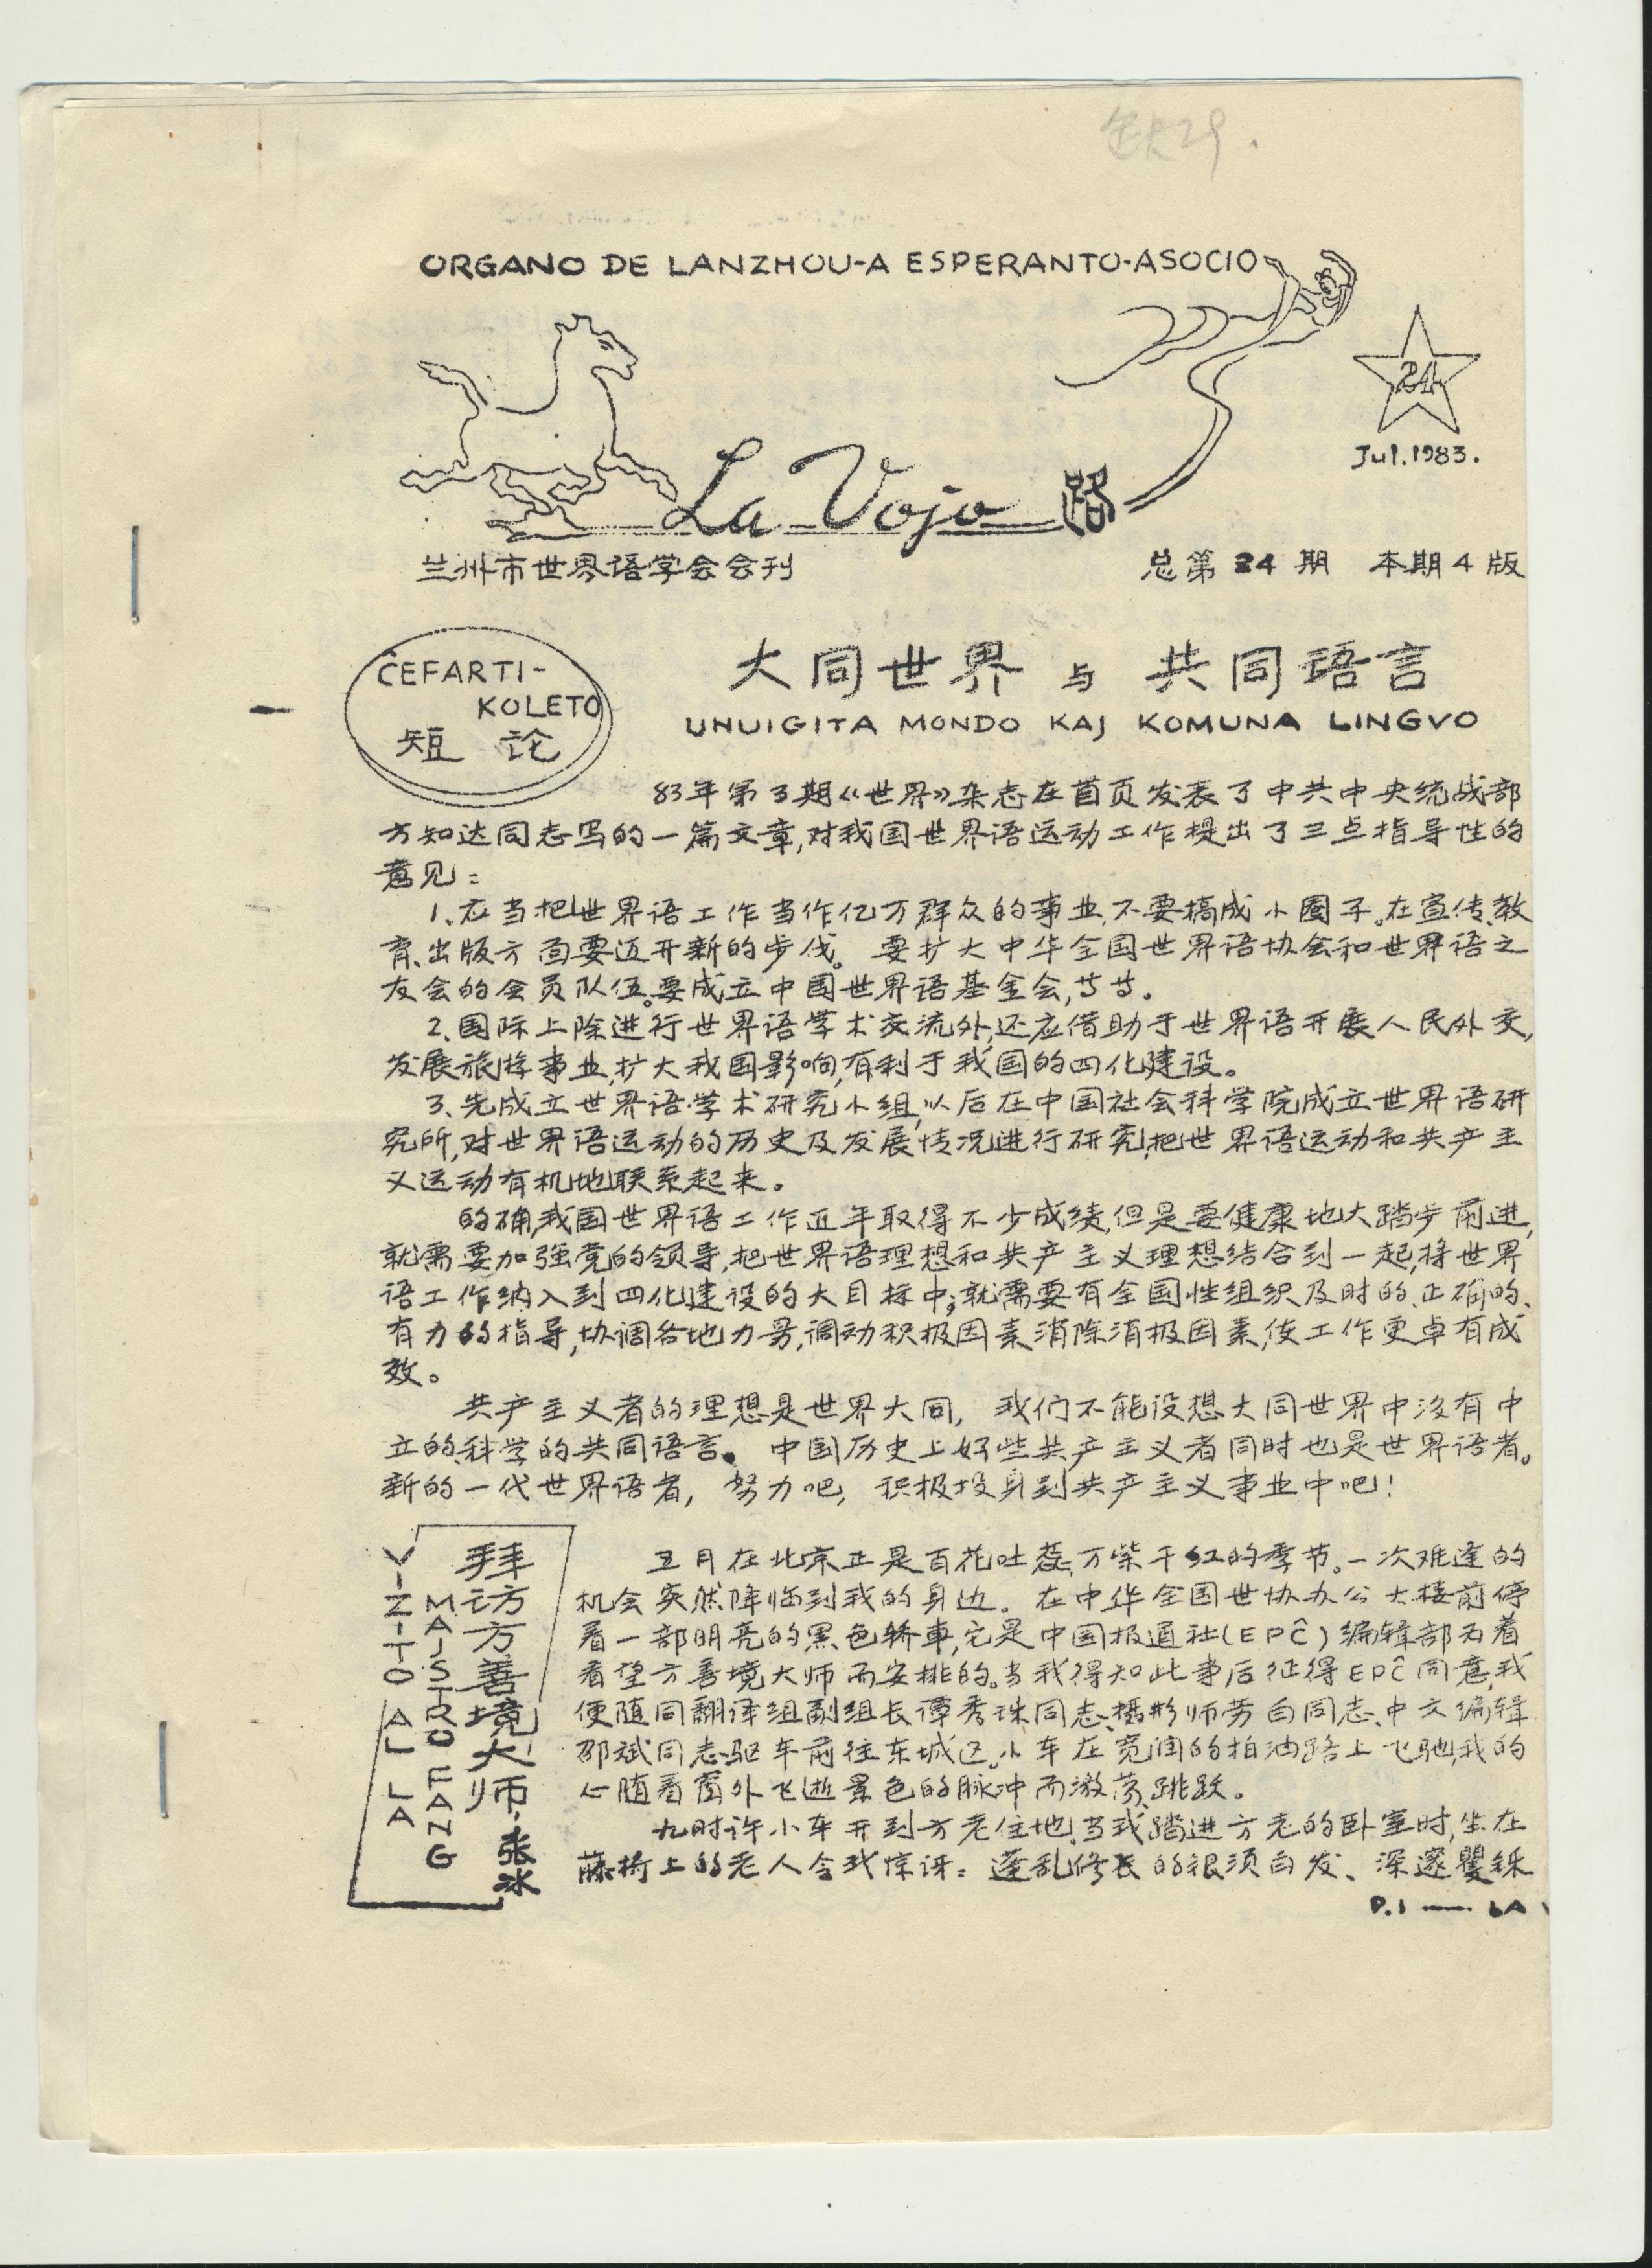 ORGANO DE LANZHOU-A ESPERANTO-ASOCIO
24
Jul.1983.
La Vojo 路
兰州市世界语学会会刊
总第24期 本期4版
ĈEFARTI-
KOLETO
短论
大同世界与共同语言
UNUIGITA MONDO KAJ KOMUNA LINGVO
83年第3期《世界》杂志在首页发表了中共中央统战部
方知达同志写的一篇文章,对我国世界语运动工作提出了三点指导性的
意见:
1、应当把世界语工作当作亿万群众的事业,不要搞成小圈子。在宣传、教
育、出版方面要迈开新的步伐。要扩大中华全国世界语协会和世界语之
友会的会员队伍。要成立中国世界语基金会,等等。
2、国际上除进行世界语学术交流外,还应借助于世界语开展人民外交,
发展旅游事业,扩大我国影响,有利于我国的四化建设。
3、先成立世界语学术研究小组,以后在中国社会科学院成立世界语研
究所,对世界语运动的历史及发展情况进行研究,把世界语运动和共产主
义运动有机地联系起来。
的确,我国世界语工作近年取得不少成绩,但是要健康地大踏步前进,
就需要加强党的领导,把世界语理想和共产主义理想结合到一起,将世界
语工作纳入到四化建设的大目标中;就需要有全国性组织及时的、正确的、
有力的指导,协调各地力量,调动积极因素,消除消极因素,使工作更卓有成
效。
共产主义者的理想是世界大同,我们不能设想大同世界中没有中
立的、科学的共同语言。中国历史上好些共产主义者同时也是世界语者。
新的一代世界语者,努力吧,积极投身到共产主义事业中吧!
拜访方善境大师
张冰
VIZITO AL LA
MAJSTRO FANG
五月在北京正是百花吐蕊、万紫千红的季节。一次难逢的
机会突然降临到我的身边。在中华全国世协办公大楼前停
着一部明亮的黑色轿車,它是中国报道社(EPĈ)编辑部为着
看望方善境大师而安排的。当我得知此事后征得EPĈ同意,我
便随同翻译组副组长谭秀珠同志、摄影师劳白同志、中文编辑
邵斌同志驱车前往东城区。小车在宽阔的柏油路上飞驰,我的
心随着窗外飞逝景色的脉冲而激荡、跳跃。
九时许小车开到方老住地,当我踏进方老的卧室时,坐在
藤椅上的老人令我惊讶:蓬乱修长的银须白发、深邃矍铄
P.1 — LA